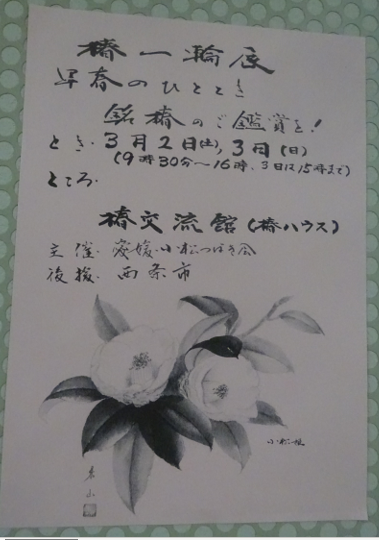 椿一輪展
早春のひととき
銘椿のご鑑賞を!
とき・3月2日(土),3日(日)
(9時30分～16時、3日は15時まで)
ところ・
椿交流館(椿ハウス)
主催・愛媛小松つばき会
後援・西条市
小松姫